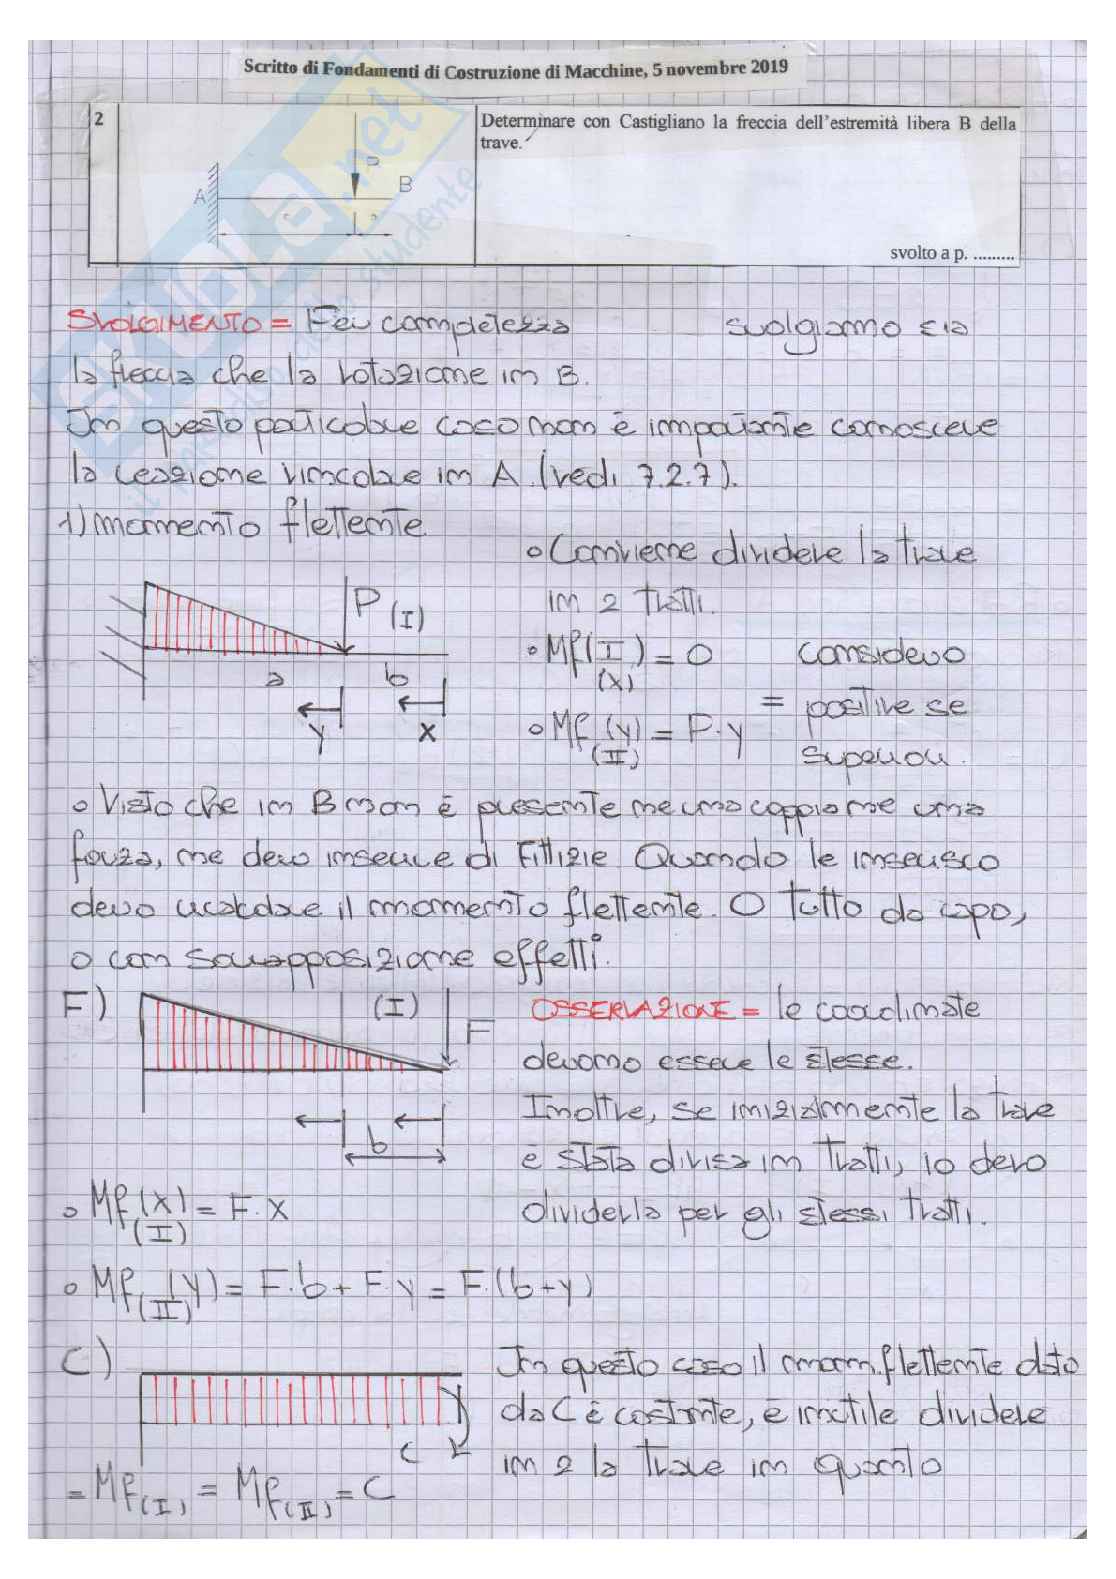 Scritto di Fondamenti di Costruzione di Macchine, 5 novembre 2019
2
Determinare con Castigliano la freccia dell'estremità libera B della
trave.
A
B
svolto a p. .........
SVOLGIMENTO = Per completezza svolgiamo sia
la freccia che la rotazione in B.
In questo particolare caso non è importante conoscere
la reazione vincolare in A (vedi 7.2.7).
1) momento flettente
o Conviene dividere la trave
in 2 tratti.
P (I)
a b
y x
o Mf(I) = 0 considero
(x)
= positive se
o Mf (y) = P.y
(II)
superiori.
o Visto che in B non è presente ne una coppia ne una
forza, ne devo inserire di Fittizie Quando le inserisco
devo ricalcolare il momento flettente. O tutto da capo,
o con sovrapposizione effetti.
F)
(I)
F
b
OSSERVAZIONE = le coordinate
devono essere le stesse.
Inoltre, se inizialmente la trave
è stata divisa in tratti, io devo
dividerla per gli stessi tratti.
o Mf (x) = F.x
(I)
o Mf (y) = F.b + F.y = F.(b+y)
(II)
C)
C
In questo caso il mom. flettente dato
da C è costante, è inutile dividere
in 2 la trave in quanto
= Mf(I) = Mf(II) = C